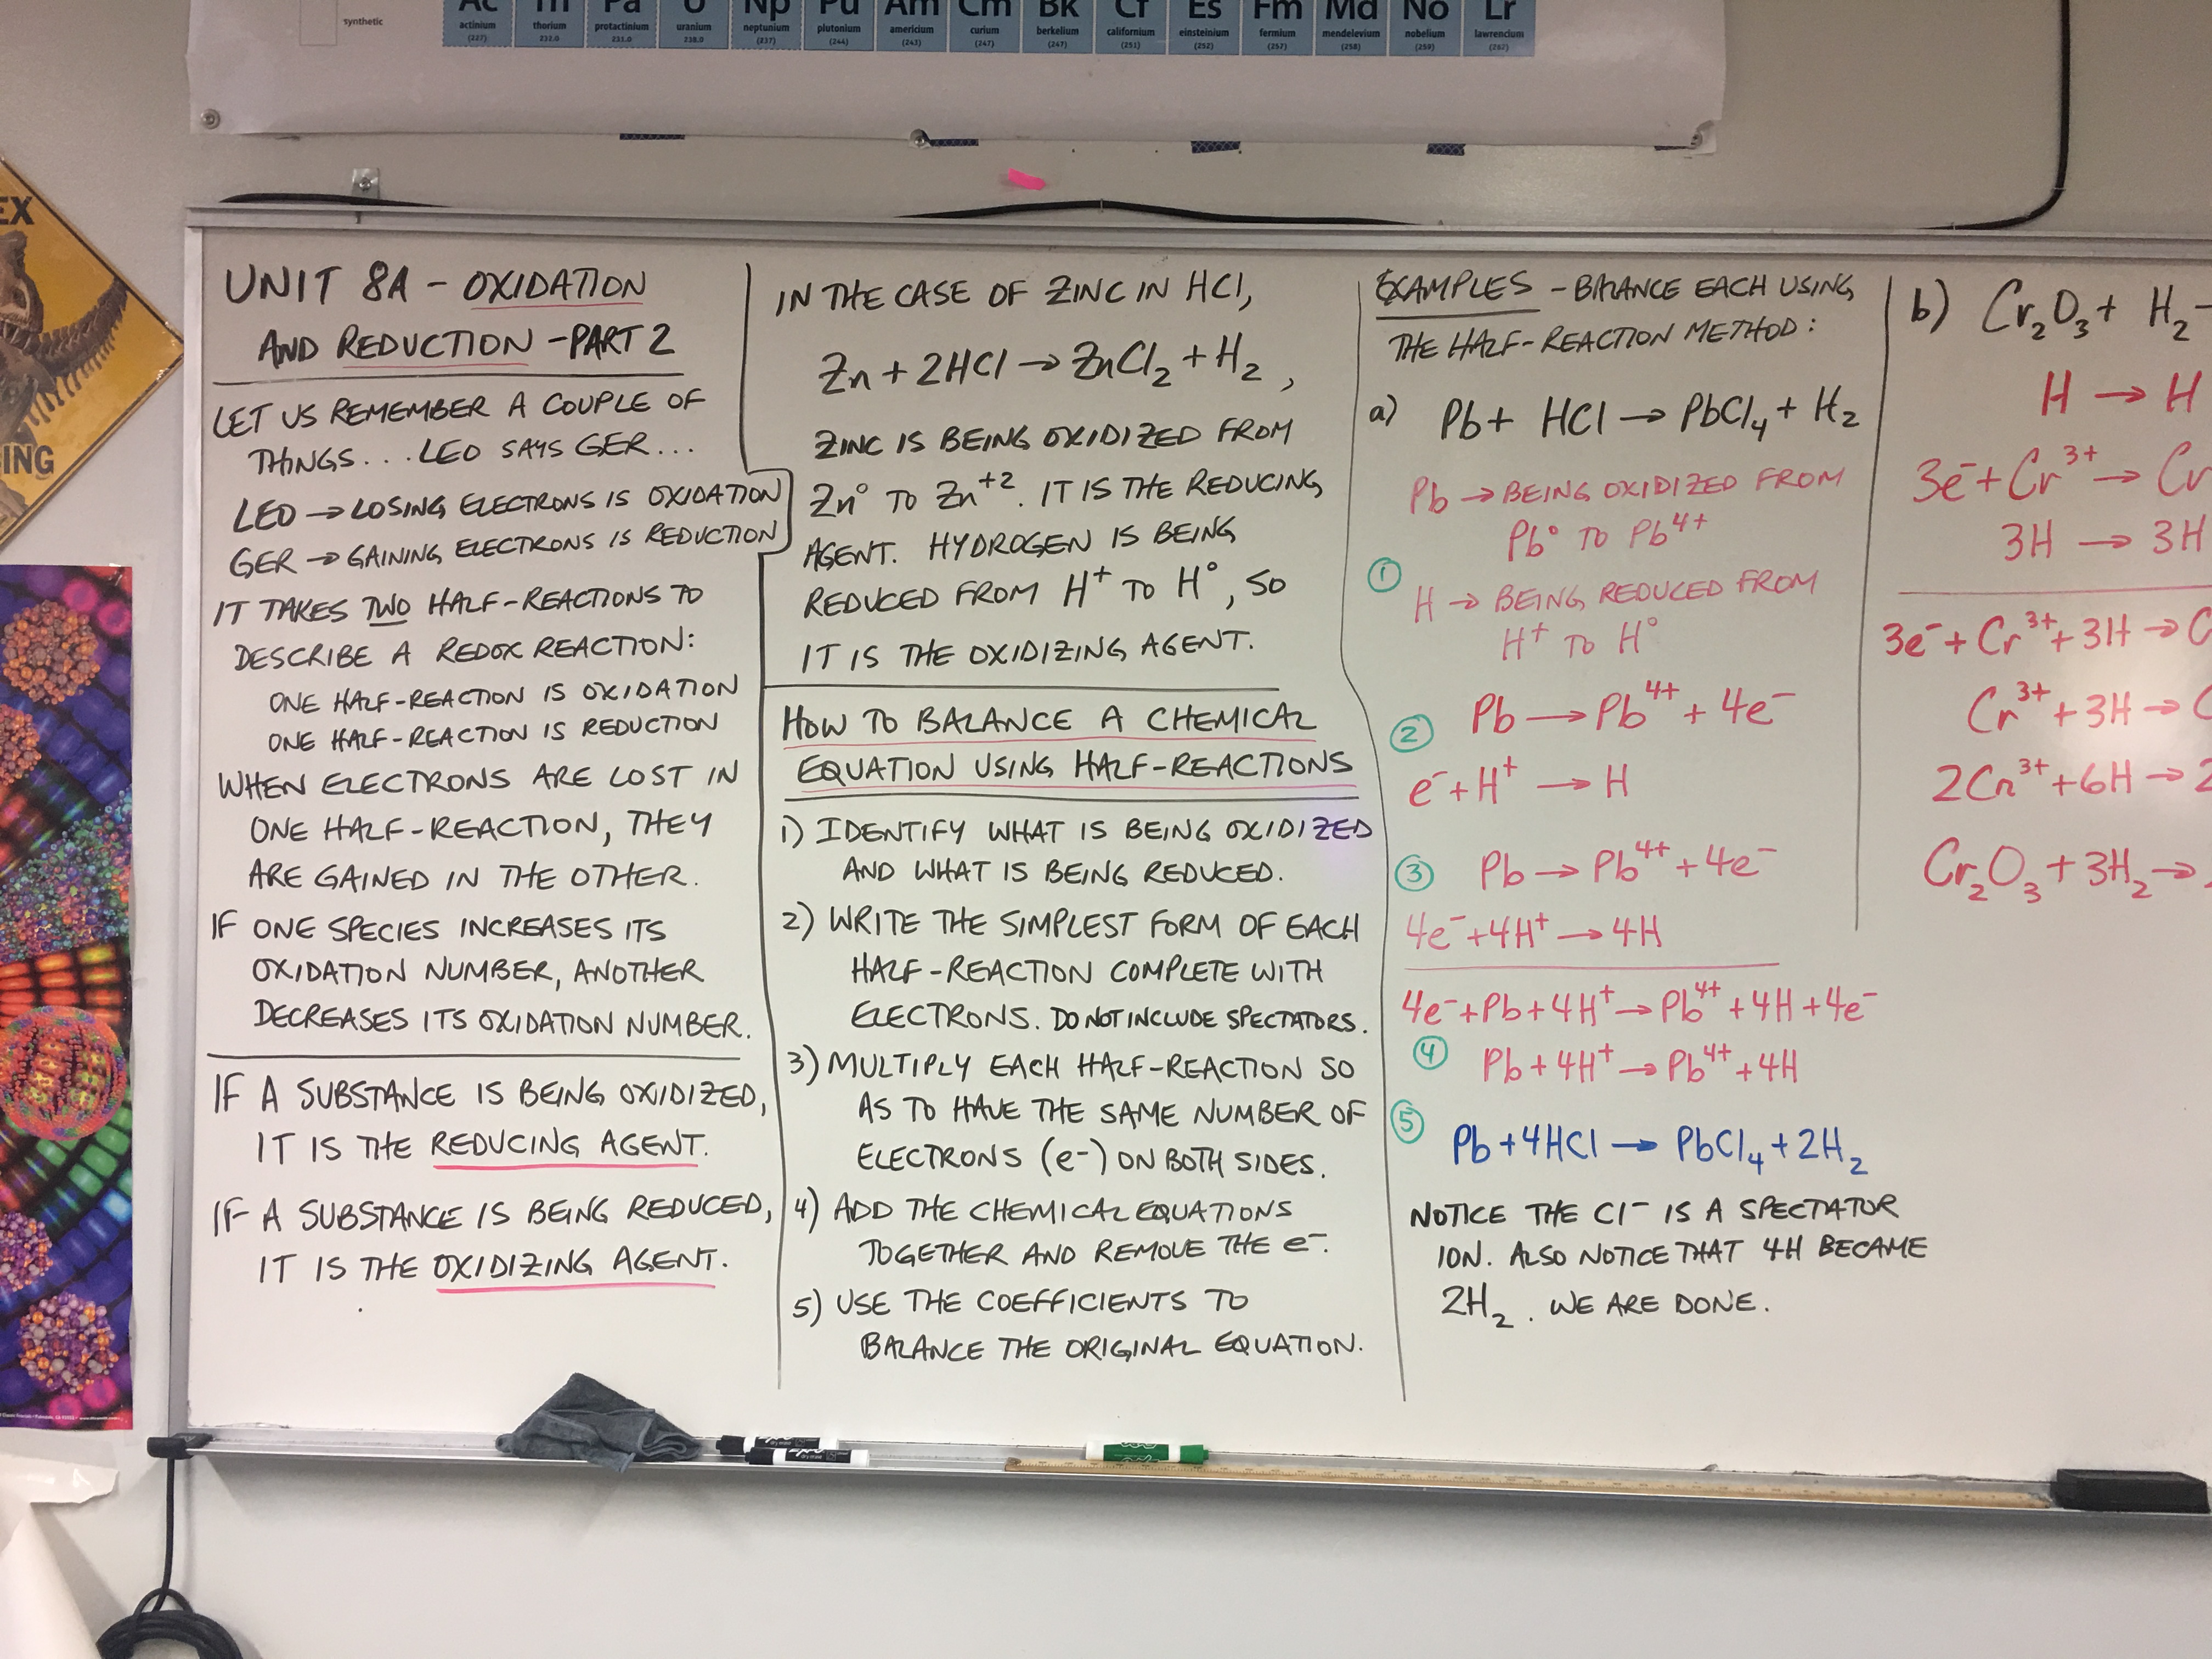 synthetic
Ac Th Pa U Np Pu Am Cm Bk Cf Es Fm Md No Lr
actinium thorium protactinium uranium neptunium plutonium americium curium berkelium californium einsteinium fermium mendelevium nobelium lawrencium
(227) 232.0 231.0 238.0 (237) (244) (243) (247) (247) (251) (252) (257) (258) (259) (262)
EX
ING
UNIT 8A - OXIDATION
AND REDUCTION - PART 2
LET US REMEMBER A COUPLE OF
THINGS... LEO SAYS GER...
LEO → LOSING ELECTRONS IS OXIDATION
GER → GAINING ELECTRONS IS REDUCTION
IT TAKES TWO HALF-REACTIONS TO
DESCRIBE A REDOX REACTION:
ONE HALF-REACTION IS OXIDATION
ONE HALF-REACTION IS REDUCTION
WHEN ELECTRONS ARE LOST IN
ONE HALF-REACTION, THEY
ARE GAINED IN THE OTHER.
IF ONE SPECIES INCREASES ITS
OXIDATION NUMBER, ANOTHER
DECREASES ITS OXIDATION NUMBER.
IF A SUBSTANCE IS BEING OXIDIZED,
IT IS THE REDUCING AGENT.
IF A SUBSTANCE IS BEING REDUCED,
IT IS THE OXIDIZING AGENT.
IN THE CASE OF ZINC IN HCl,
Zn + 2HCl → ZnCl₂ + H₂,
ZINC IS BEING OXIDIZED FROM
Zn° TO Zn⁺². IT IS THE REDUCING
AGENT. HYDROGEN IS BEING
REDUCED FROM H⁺ TO H°, SO
IT IS THE OXIDIZING AGENT.
HOW TO BALANCE A CHEMICAL
EQUATION USING HALF-REACTIONS
1) IDENTIFY WHAT IS BEING OXIDIZED
AND WHAT IS BEING REDUCED.
2) WRITE THE SIMPLEST FORM OF EACH
HALF-REACTION COMPLETE WITH
ELECTRONS. DO NOT INCLUDE SPECTATORS.
3) MULTIPLY EACH HALF-REACTION SO
AS TO HAVE THE SAME NUMBER OF
ELECTRONS (e-) ON BOTH SIDES.
4) ADD THE CHEMICAL EQUATIONS
TOGETHER AND REMOVE THE e⁻.
5) USE THE COEFFICIENTS TO
BALANCE THE ORIGINAL EQUATION.
EXAMPLES - BALANCE EACH USING
THE HALF-REACTION METHOD:
a) Pb + HCl → PbCl₄ + H₂
Pb → BEING OXIDIZED FROM
Pb° TO Pb⁴⁺
① H → BEING REDUCED FROM
H⁺ TO H°
② Pb → Pb⁴⁺ + 4e⁻
e⁻ + H⁺ → H
③ Pb → Pb⁴⁺ + 4e⁻
4e⁻ + 4H⁺ → 4H
4e⁻ + Pb + 4H⁺ → Pb⁴⁺ + 4H + 4e⁻
④ Pb + 4H⁺ → Pb⁴⁺ + 4H
⑤ Pb + 4HCl → PbCl₄ + 2H₂
NOTICE THE Cl⁻ IS A SPECTATOR
ION. ALSO NOTICE THAT 4H BECAME
2H₂. WE ARE DONE.
b) Cr₂O₃ + H₂
H → H
3e⁻ + Cr³⁺ → Cr
3H → 3H
3e⁻ + Cr³⁺ + 3H → C
Cr³⁺ + 3H → C
2Cr³⁺ + 6H → 2
Cr₂O₃ + 3H₂ →